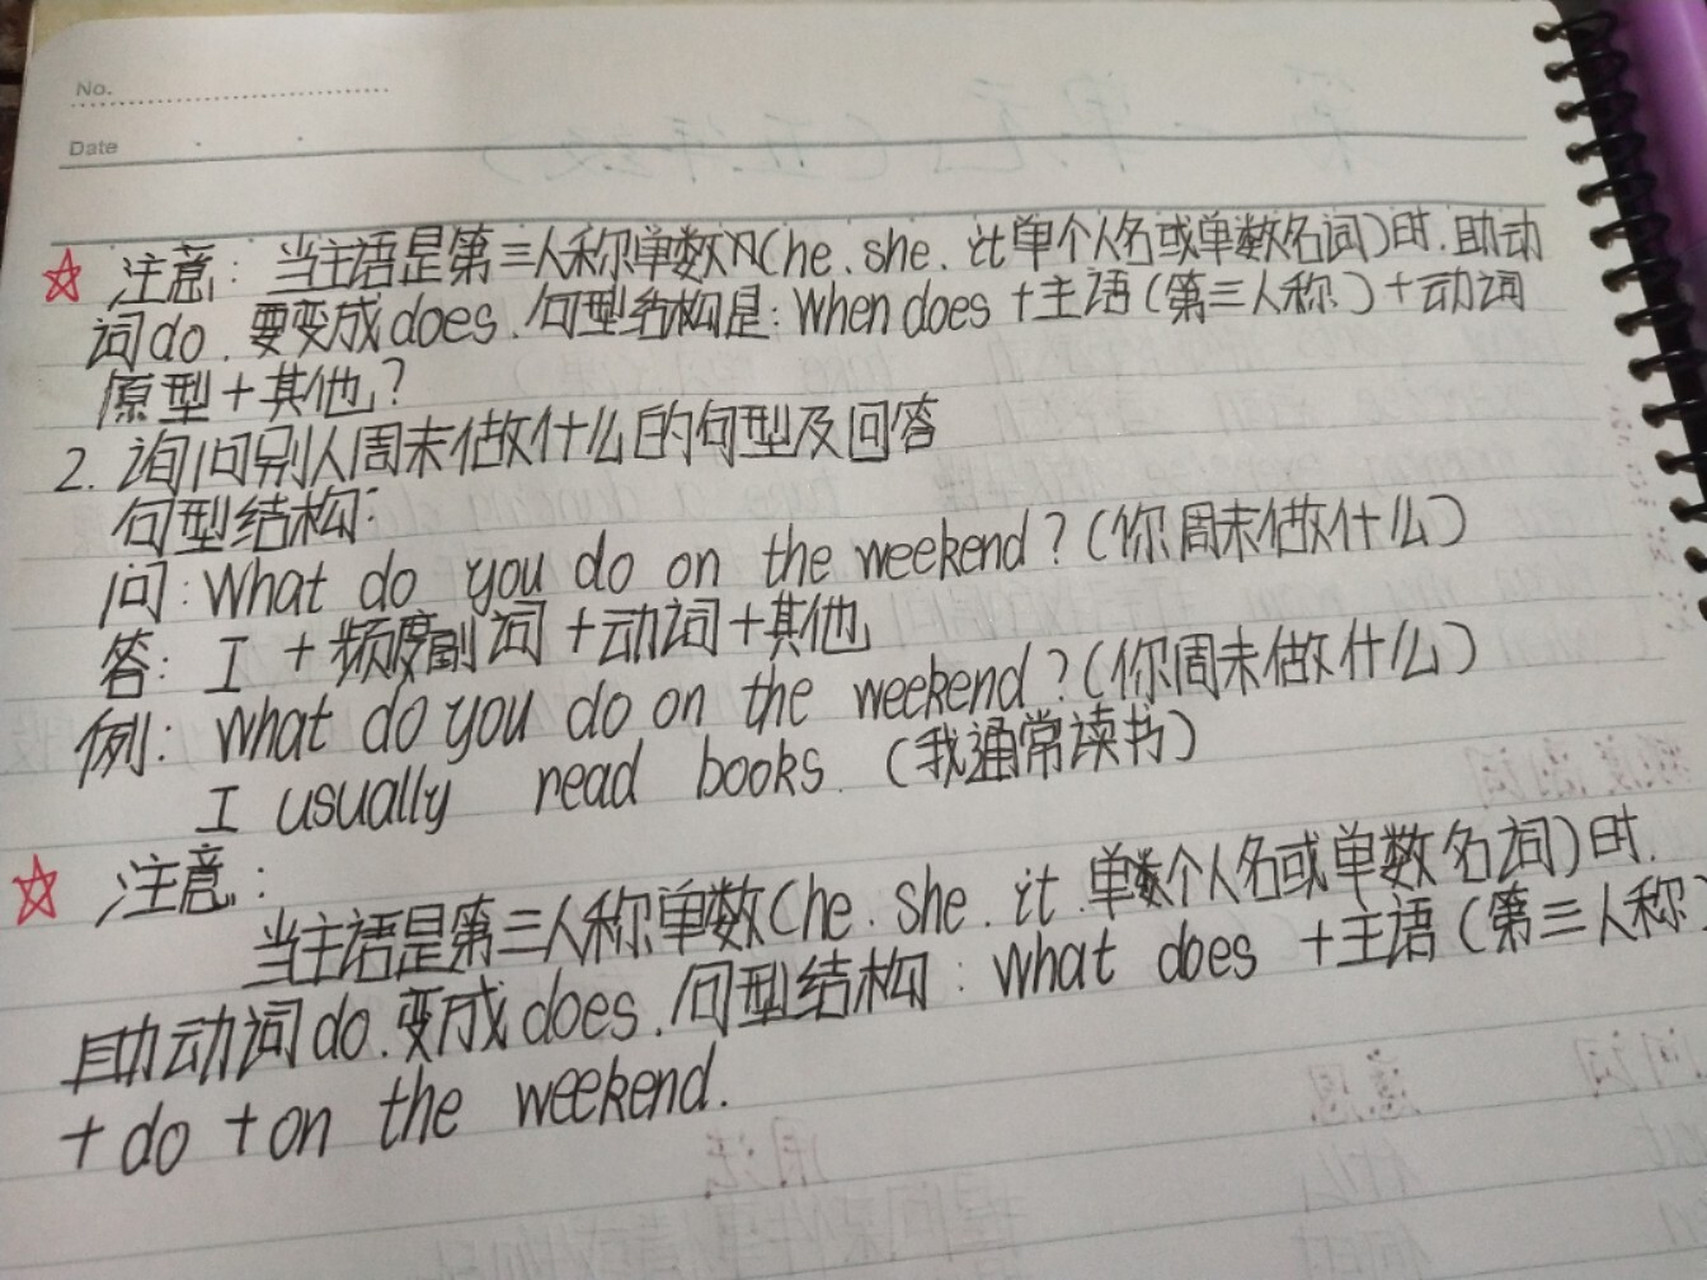 No.
Date
☆ 注意：当主语是第三人称单数(he、she、it单个人名或单数名词)时.助动
词do.要变成does.句型结构是：When does+主语(第三人称)+动词
原型+其他？
2. 询问别人周末做什么的句型及回答
句型结构：
问：What do you do on the weekend？(你周末做什么)
答：I +频度副词+动词+其他
例：What do you do on the weekend？(你周末做什么)
I usually read books.(我通常读书)
☆ 注意：
当主语是第三人称单数(he.she.it.单数个人名或单数名词)时.
助动词do.变成does.句型结构：What does +主语(第三人称)
+do+on the weekend.